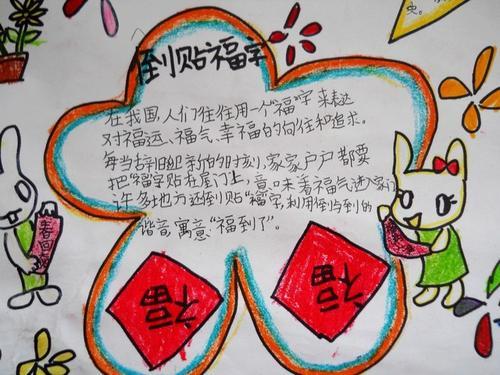 倒贴福字
在我国,人们往往用一个“福”字来表达
对福运、福气、幸福的向往和追求。
每当辞旧迎新的时刻,家家户户都要
把“福”字贴在屋门上,意味着福气进家门
许多地方还倒贴“福”字,利用倒与到的
谐音,寓意“福到了”。
福
福
春回